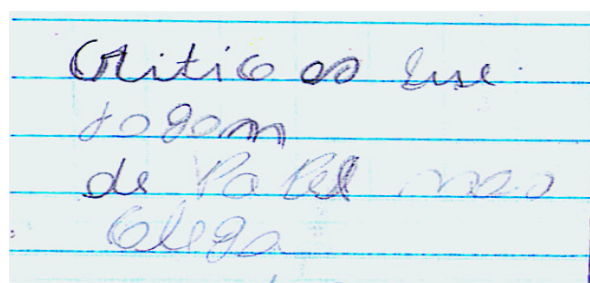 Critico os
Jogam
de Papel
Colega